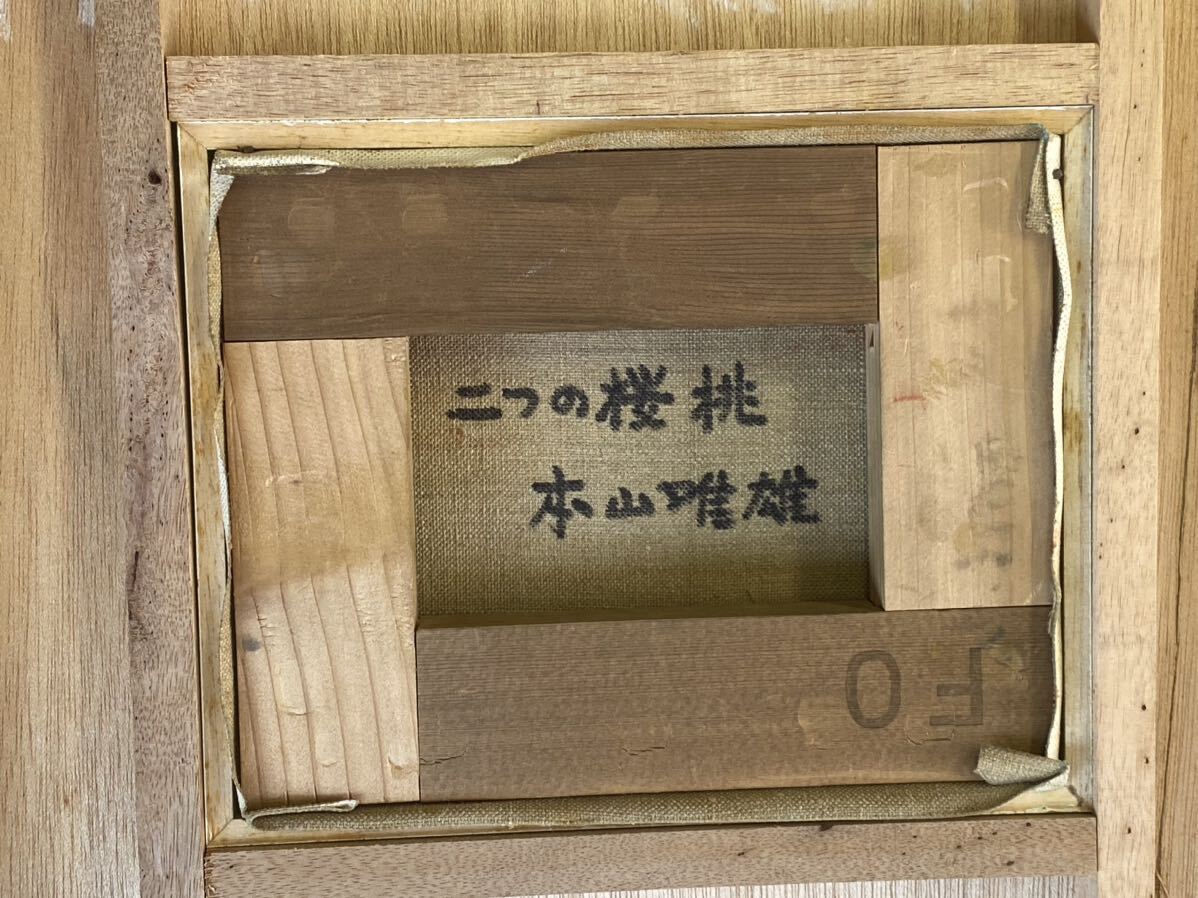 二つの桜桃
本山唯雄
F0